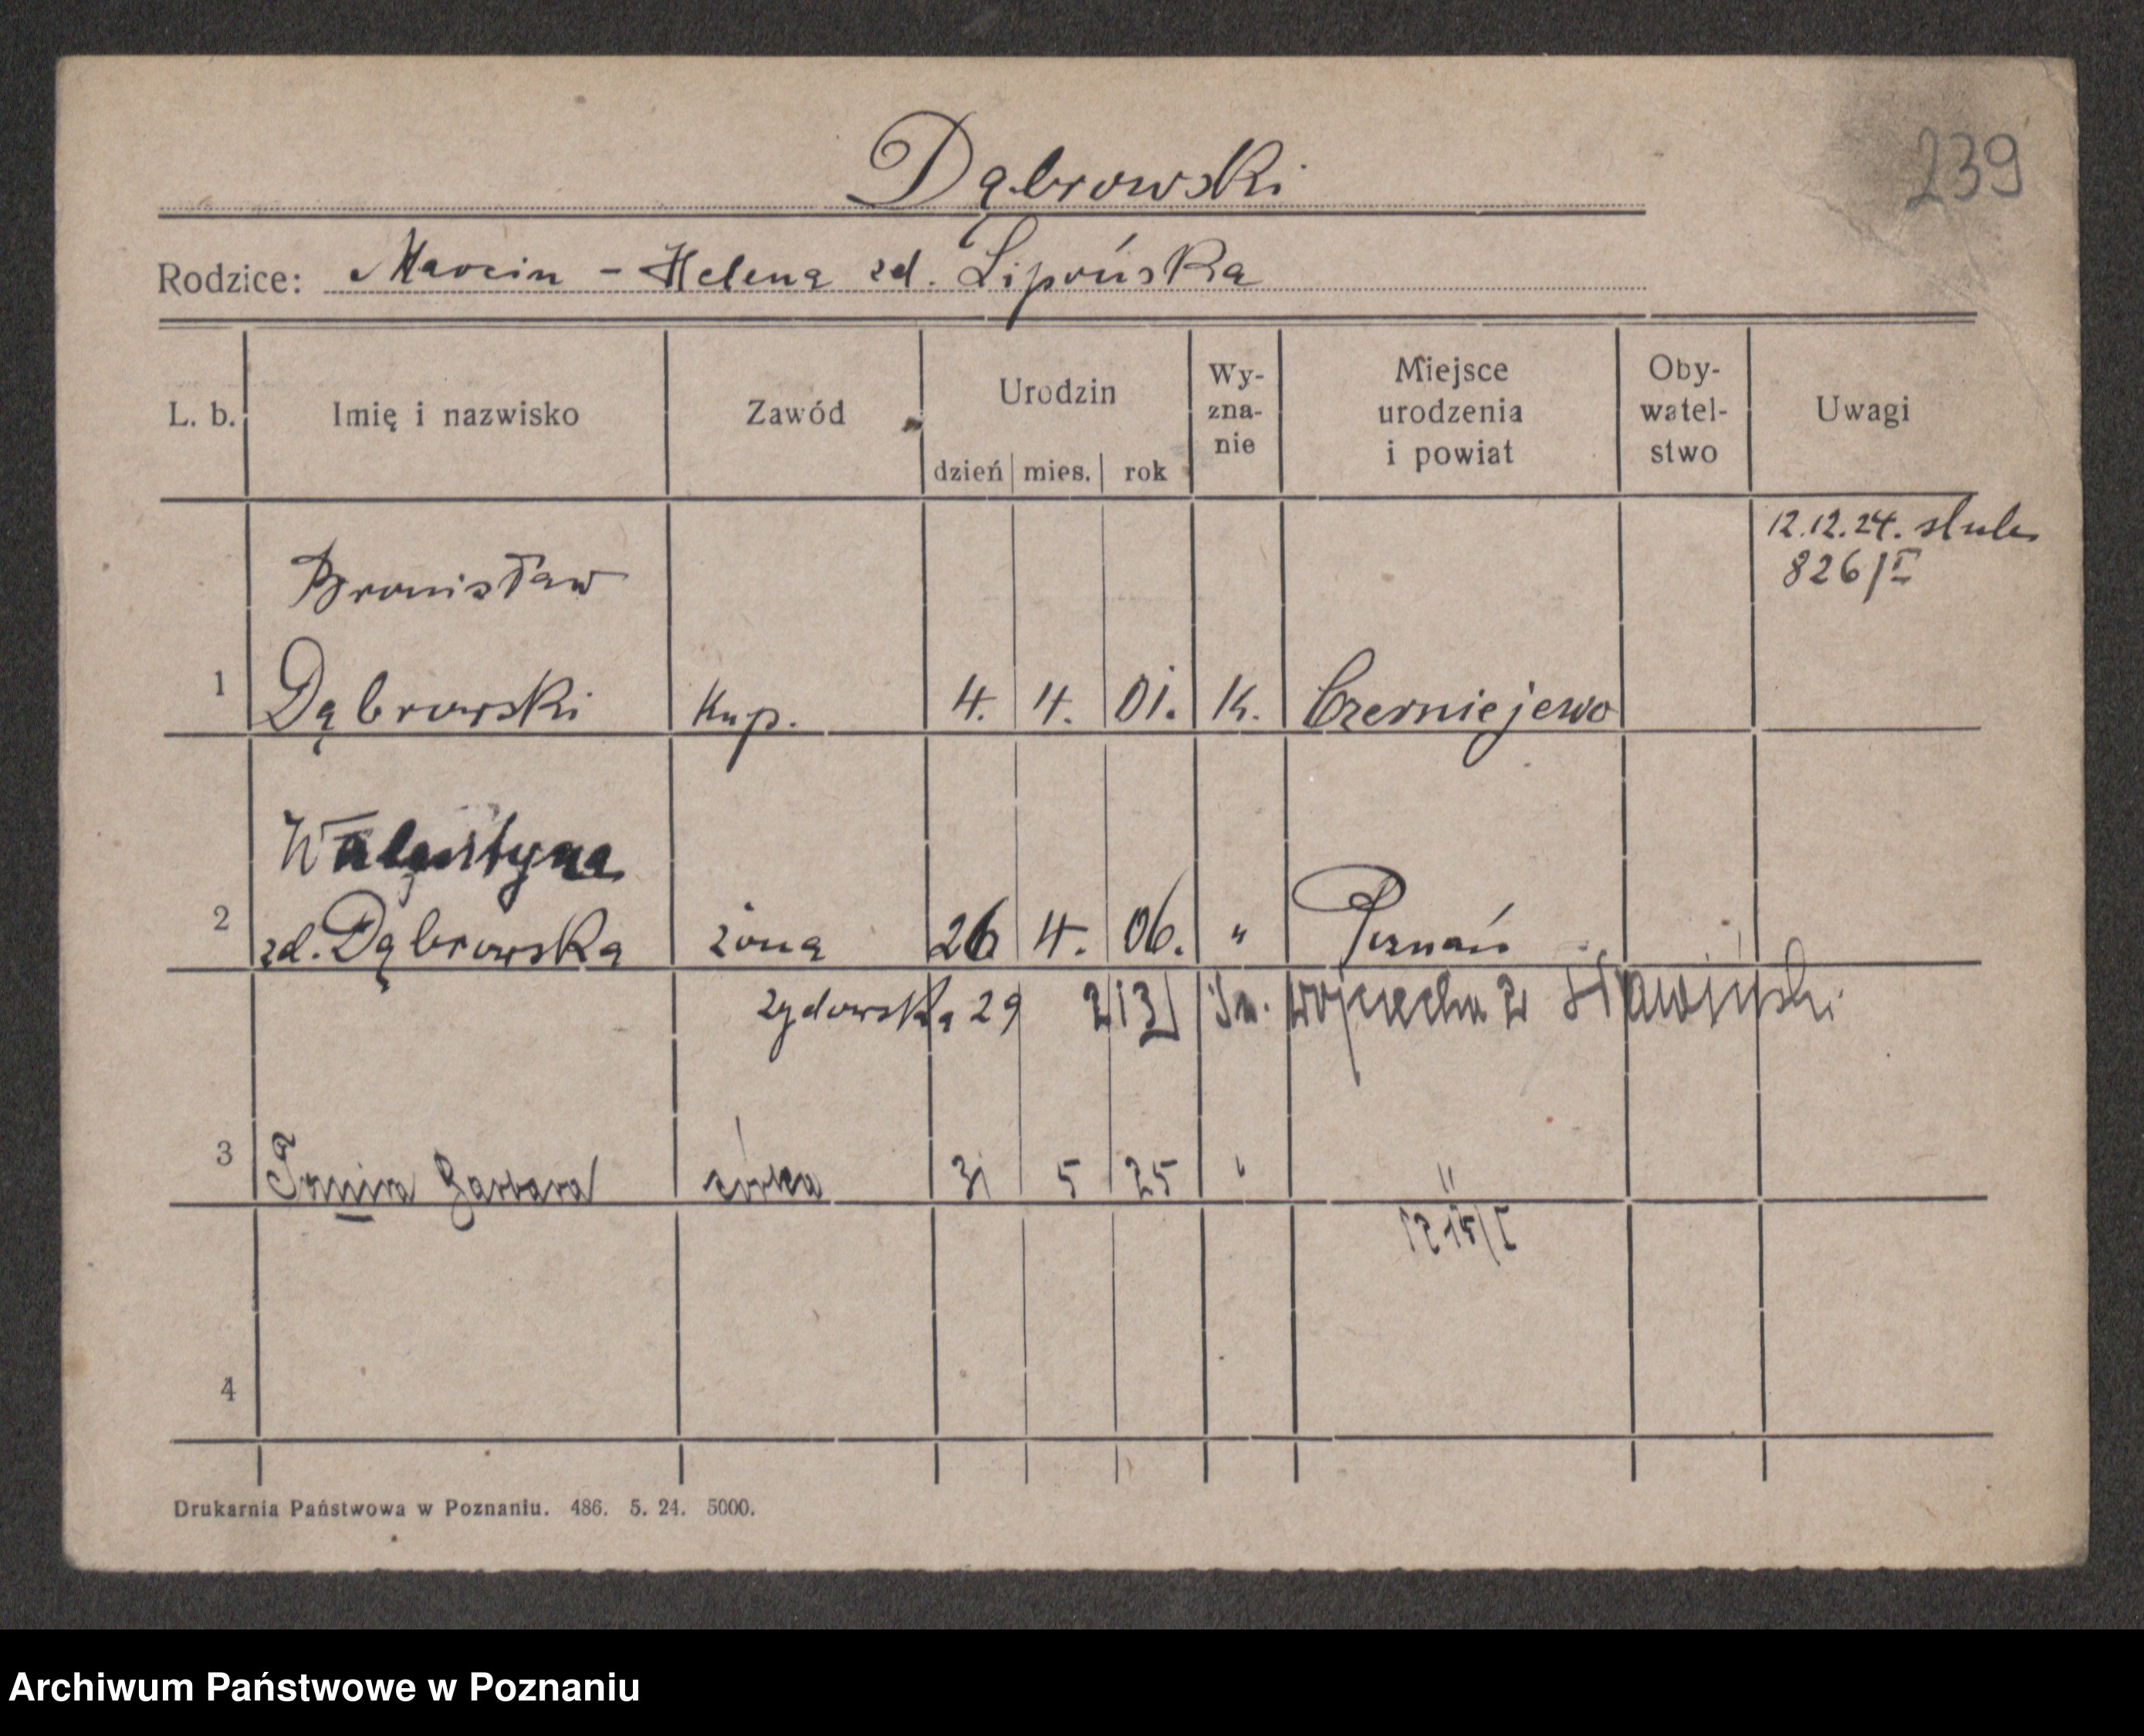 239
Dąbrowski
Rodzice: Marcin - Helena zd. Lipońska
L. b. Imię i nazwisko Zawód Urodzin dzień mies. rok Wy-zna-nie Miejsce urodzenia i powiat Oby-watel-stwo Uwagi
12.12.24. slub
826/I
Bronisław
1 Dąbrowski kup. 4. 4. 01. K. Czerniejewo
Walentyna
2 zd. Dąbrowska żona 26 4. 06. " Poznań
Zydowska 29 213 Św. Wojciecha
3 Barbara córka 31 5 25 " "
4
Drukarnia Państwowa w Poznaniu. 486. 5. 24. 5000.
Archiwum Państwowe w Poznaniu